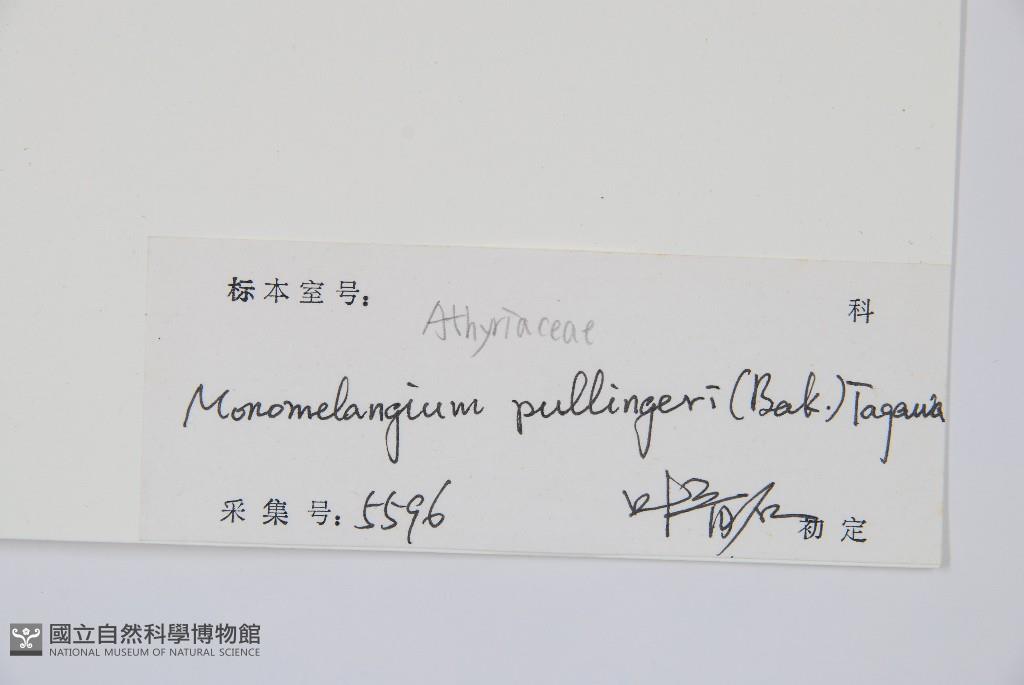 标本室号：
科
Athyriaceae
Monomelangium pullingeri (Bak.) Tagawa
采集号：5596
初定
國立自然科學博物館
NATIONAL MUSEUM OF NATURAL SCIENCE